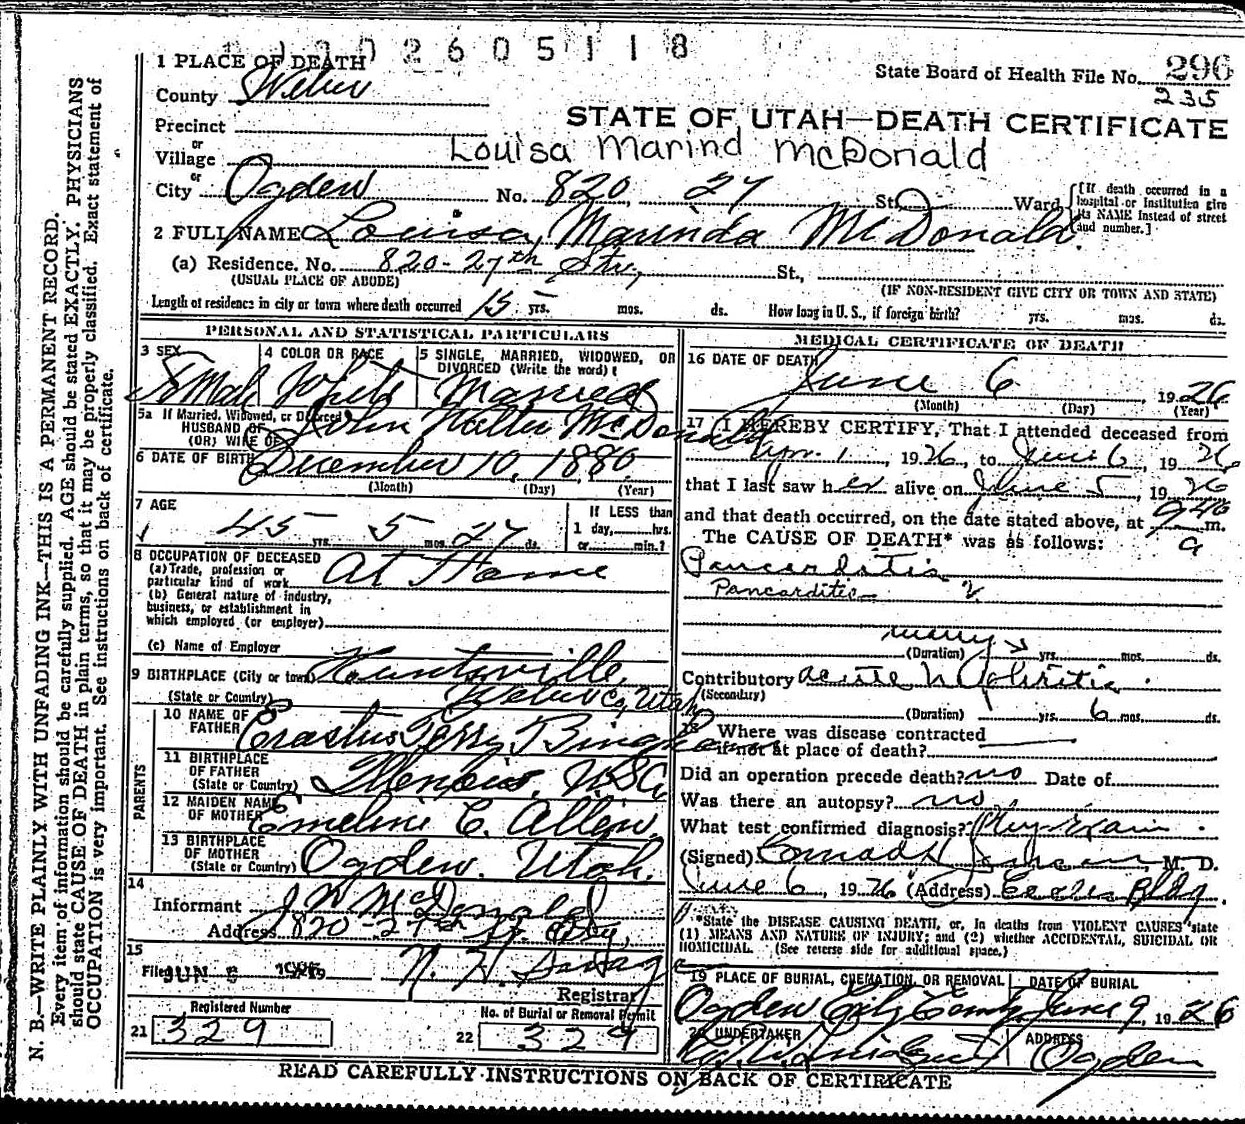 2 6 0 5 1 1 8
1 PLACE OF DEATH
State Board of Health File No. 296
235
County Weber
STATE OF UTAH—DEATH CERTIFICATE
Precinct
or
Louisa Marind McDonald
Village
or
City Ogden No. 820, 27 St. Ward [If death occurred in a hospital or institution give its NAME instead of street and number.]
2 FULL NAME Louisa Marinda McDonald.
(a) Residence. No. 820-27th Str, St.,
(USUAL PLACE OF ABODE) (IF NON-RESIDENT GIVE CITY OR TOWN AND STATE)
Length of residence in city or town where death occurred 15 yrs. mos. ds. How long in U. S., if foreign birth? yrs. mos. ds.
PERSONAL AND STATISTICAL PARTICULARS
3 SEX
4 COLOR OR RACE
5 SINGLE, MARRIED, WIDOWED, OR DIVORCED (Write the word)
Female White Married
5a If Married, Widowed, or Divorced
HUSBAND OF
(OR) WIFE OF
John Walter McDonald
6 DATE OF BIRTH December 10, 1880
(Month) (Day) (Year)
7 AGE
45 yrs. 5 mos. 27 ds.
If LESS than
1 day, hrs.
or min.?
8 OCCUPATION OF DECEASED
(a) Trade, profession or
particular kind of work At Home
(b) General nature of industry,
business, or establishment in
which employed (or employer)
(c) Name of Employer
9 BIRTHPLACE (City or town) Huntsville,
(State or Country) Weber Co, Utah
PARENTS
10 NAME OF FATHER Erastus Perry Bingham
11 BIRTHPLACE OF FATHER
(State or Country) Illinois, U.S.A.
12 MAIDEN NAME OF MOTHER Emeline C. Allen,
13 BIRTHPLACE OF MOTHER
(State or Country) Ogden, Utah.
14
Informant J W McDonald
Address 820-27th St. City,
15
Filed JUN 1926 19 N. H. Savage
Registrar
Registered Number
No. of Burial or Removal Permit
21 329
22 329
MEDICAL CERTIFICATE OF DEATH
16 DATE OF DEATH
June 6, 1926
(Month) (Day) (Year)
17 I HEREBY CERTIFY, That I attended deceased from
Apr. 1, 1926, to June 6, 1926
that I last saw her alive on June 5, 1926
and that death occurred, on the date stated above, at 940 m.
a
The CAUSE OF DEATH* was as follows:
Pancarditis
Pancarditis
many
(Duration) yrs. mos. ds.
Contributory acute Nephritis
(Secondary)
(Duration) yrs. 6 mos. ds.
18 Where was disease contracted
if not at place of death?
Did an operation precede death? no Date of
Was there an autopsy? no
What test confirmed diagnosis? Phy. Exam.
(Signed) Conrad H Jensen, M. D.
June 6, 1926 (Address) Eccles Bldg.
*State the DISEASE CAUSING DEATH, or, in deaths from VIOLENT CAUSES state
(1) MEANS AND NATURE OF INJURY; and (2) whether ACCIDENTAL, SUICIDAL OR
HOMICIDAL. (See reverse side for additional space.)
19 PLACE OF BURIAL, CREMATION, OR REMOVAL
DATE OF BURIAL
Ogden City June 9, 1926
20 UNDERTAKER
ADDRESS
Ogden
READ CAREFULLY INSTRUCTIONS ON BACK OF CERTIFICATE
N. B.—WRITE PLAINLY WITH UNFADING INK—THIS IS A PERMANENT RECORD.
Every item of information should be carefully supplied. AGE should be stated EXACTLY. PHYSICIANS
should state CAUSE OF DEATH in plain terms, so that it may be properly classified. Exact statement of
OCCUPATION is very important. See instructions on back of certificate.